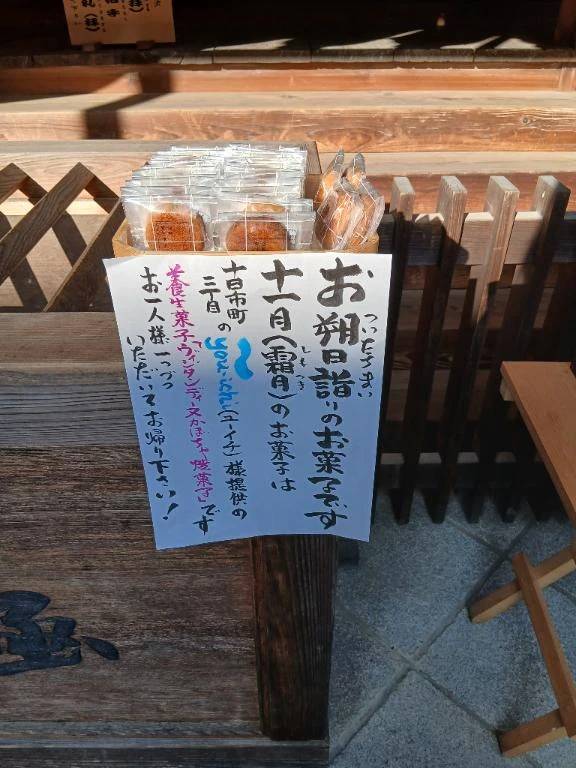 ついたちまい
お朔日詣りのお菓子です
しもつき
十一月(霜月)のお菓子は
十日市町
三丁目の you-ichi(ユーイチ)様提供の
栄養生菓子「ヴィンタンティーヌかぼちゃ焼菓子」です
お一人様一つづつ
いただいてお帰り下さい!